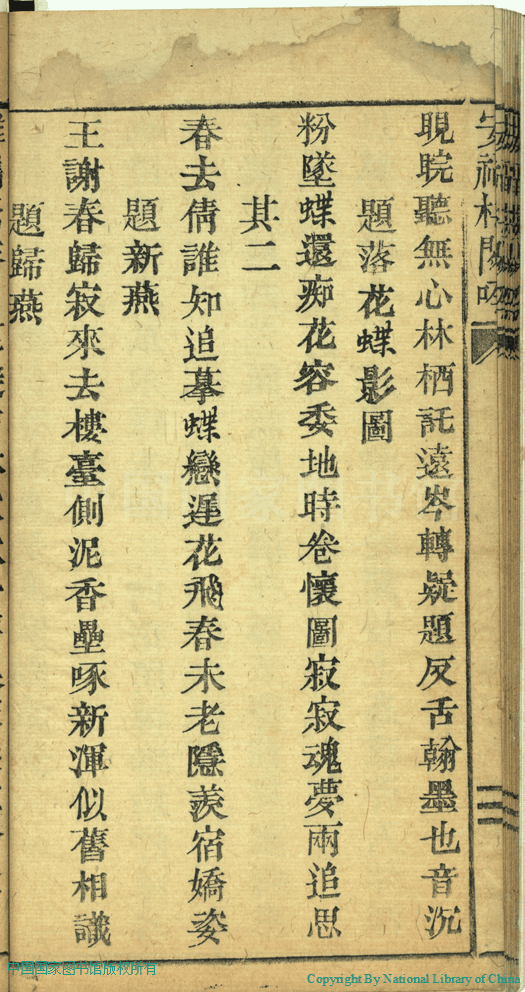 睍睆聽無心林栖託遠岑轉疑題反舌翰墨也音沉
題落花蝶影圖
粉墜蝶還痴花容委地時卷懷圖寂寂魂夢兩追思
其二
春去倩誰知追摹蝶戀遲花飛春未老隱羨宿嬌姿
題新燕
王謝春歸寂來去樓臺側泥香壘啄新渾似舊相識
題歸燕
中国国家图书馆版权所有
Copyright By National Library of China